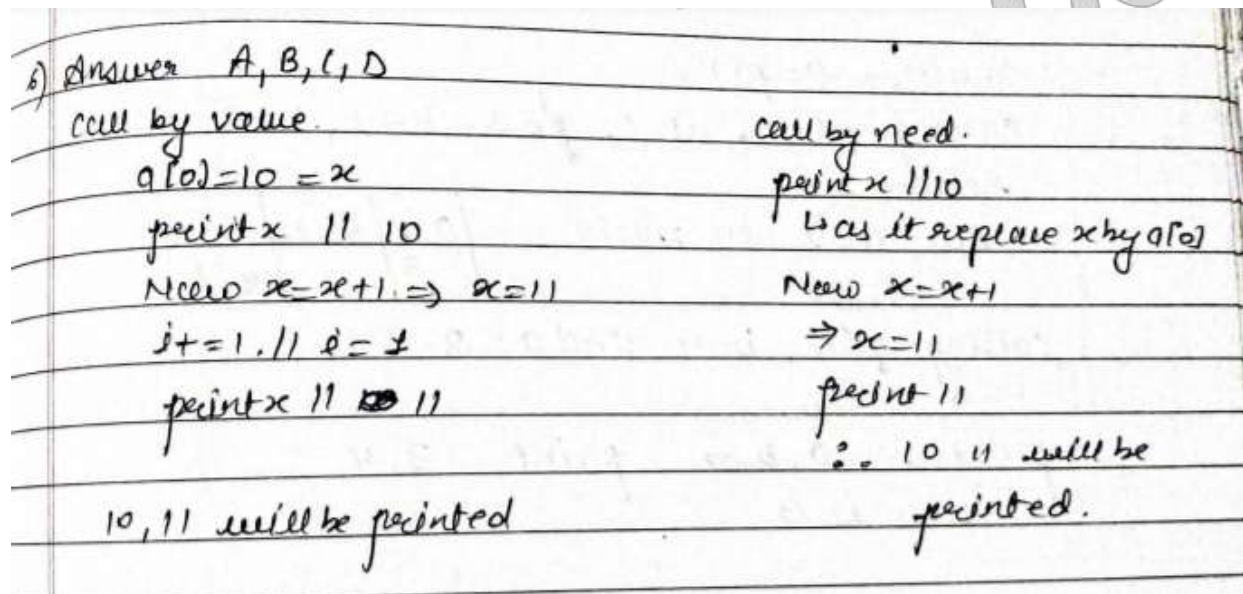 6) Answer A, B, C, D
call by value.
a[0]=10 = x
print x || 10
Now x=x+1. => x=11
i+=1. // i= 1
print x || 11
10, 11 will be printed
call by need.
print x ||10
↳ as it replace x by a[0]
Now x=x+1
⇒ x=11
print 11
∴ 10 11 will be
printed.